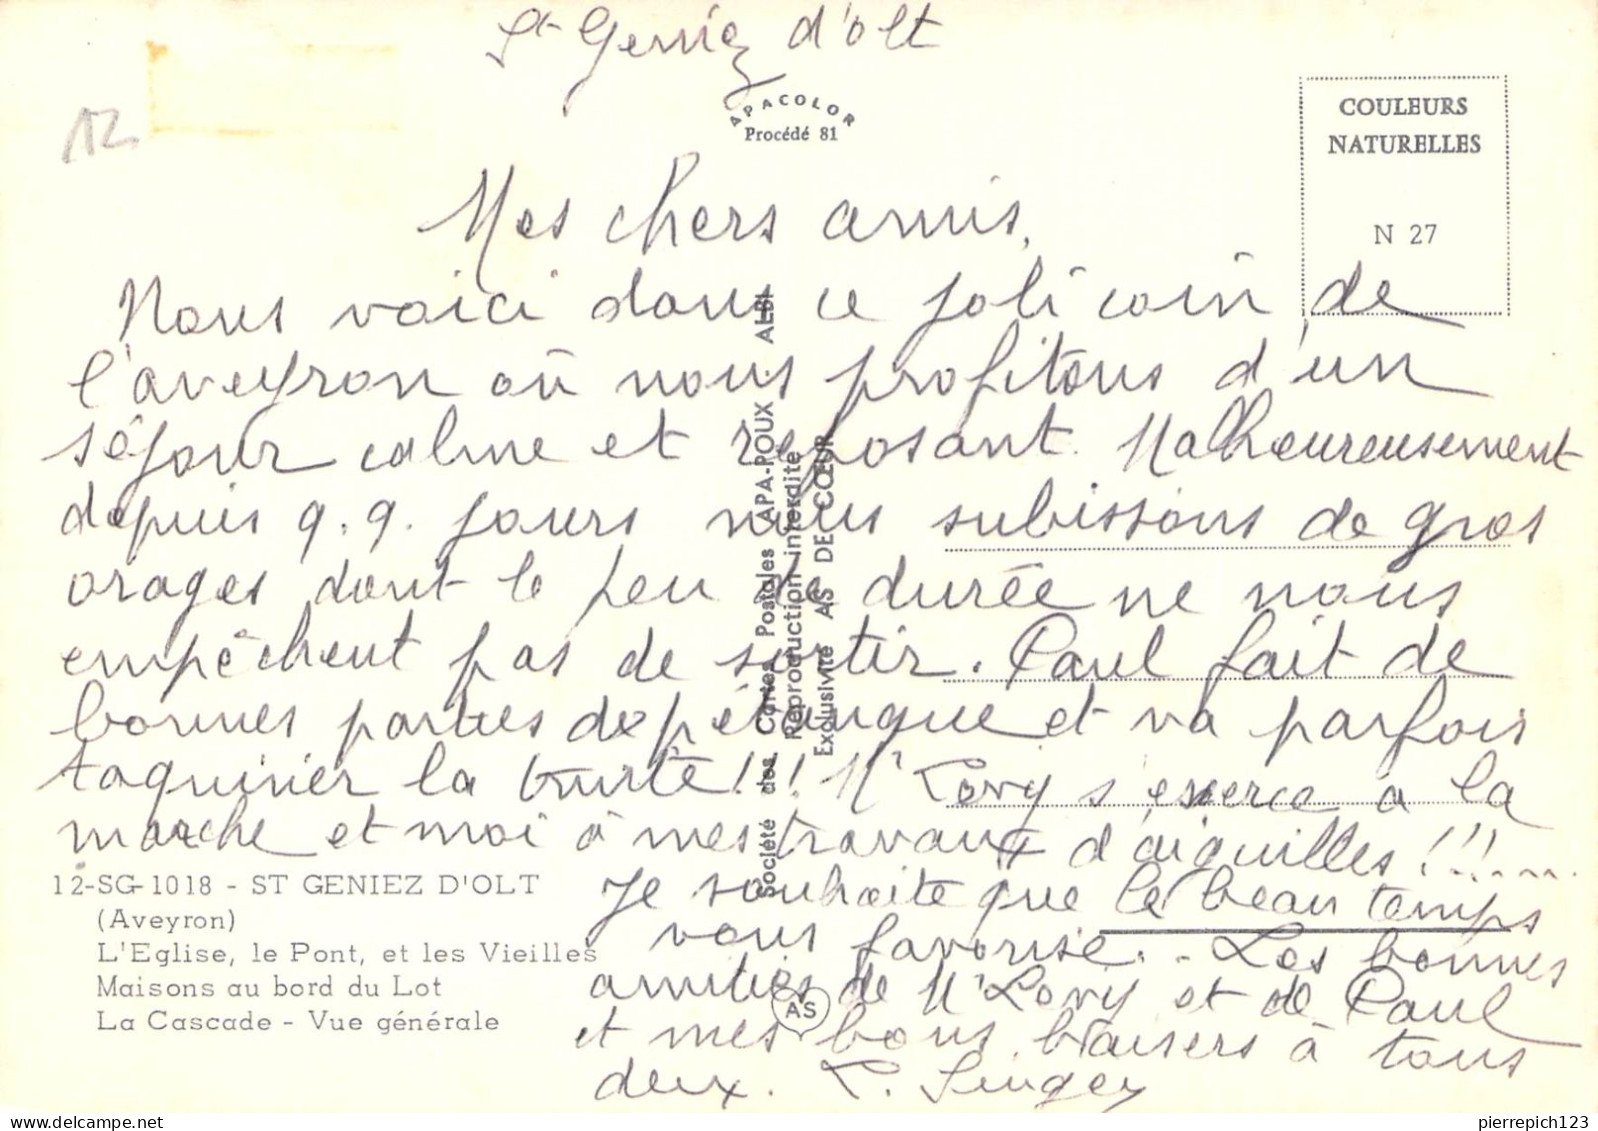 St Geniez d'olt
12
APACOLOR
Procédé 81
COULEURS
NATURELLES
N 27
Mes chers amis,
Nous voici dans ce joli coin de
l'aveyron où nous profitons d'un
séjour calme et reposant. Malheureusement
depuis q.q. jours nous subissons de gros
orages dont le peu de durée ne nous
empêchent pas de sortir. Paul fait de
bonnes parties de pétanque et va parfois
taquiner la truite!!! Mr Lovy s'exerce a la
marche et moi à mes travaux d'aiguilles!!!.....
Je souhaite que le beau temps
vous favorise. - Les bonnes
amitiés de Mr Lovy et de Paul
et mes bons baisers à tous
deux.
Société des Cartes Postales APA-POUX - ALBI
Reproduction interdite
Exclusivité AS DE CŒUR
12-SG-1018 - ST GENIEZ D'OLT
(Aveyron)
L'Eglise, le Pont, et les Vieilles
Maisons au bord du Lot
La Cascade - Vue générale
AS
pierrepich123